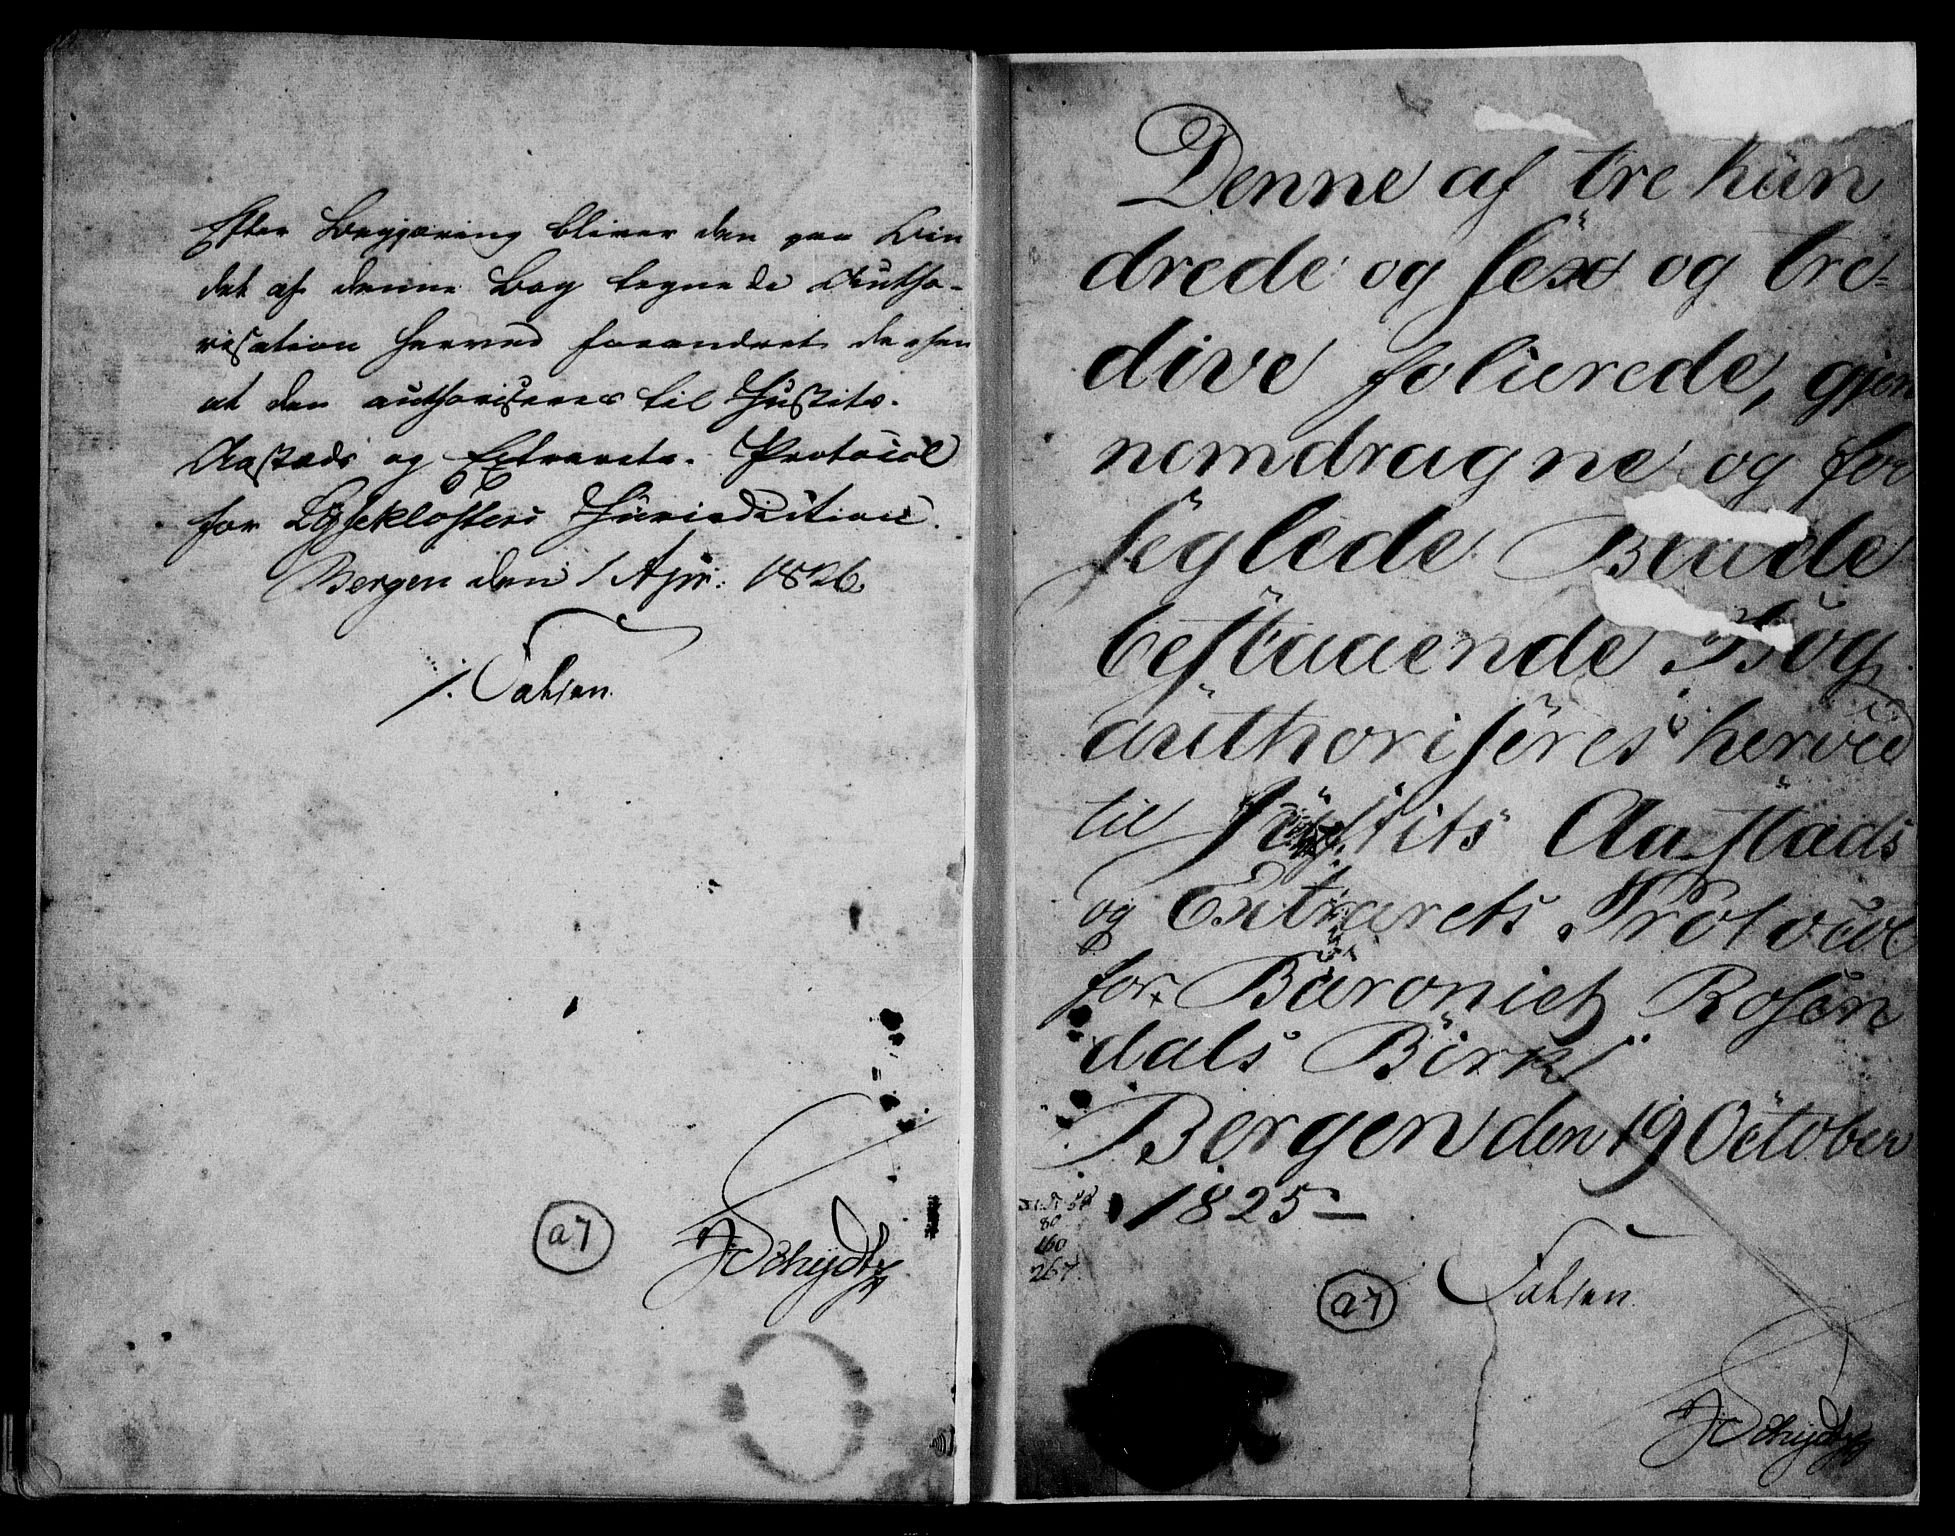 Efter Begjæring bliver den paa Bin
det af denne Bog tegnede Autho-
risation herved forandret derhen
at den authoriseres til Justits-
Aastæds og Extrarets- Protocol
for Lysekloster Jurisdiction.
Bergen den 1 Apr: 1826.
Falsen
a7
JSchydtz
Denne af tre hun
drede og sex og tre-
dive folierede, gjen
nemdragne og for
seglede Blade
bestaaende Bog
authoriseres herved
til Justits Aastæds
og Extrarets Protocol
for Baroniet Rosen
dals Birk
Bergen den 19 October
1825
80
160
267.
Falsen
a7
JSchydtz